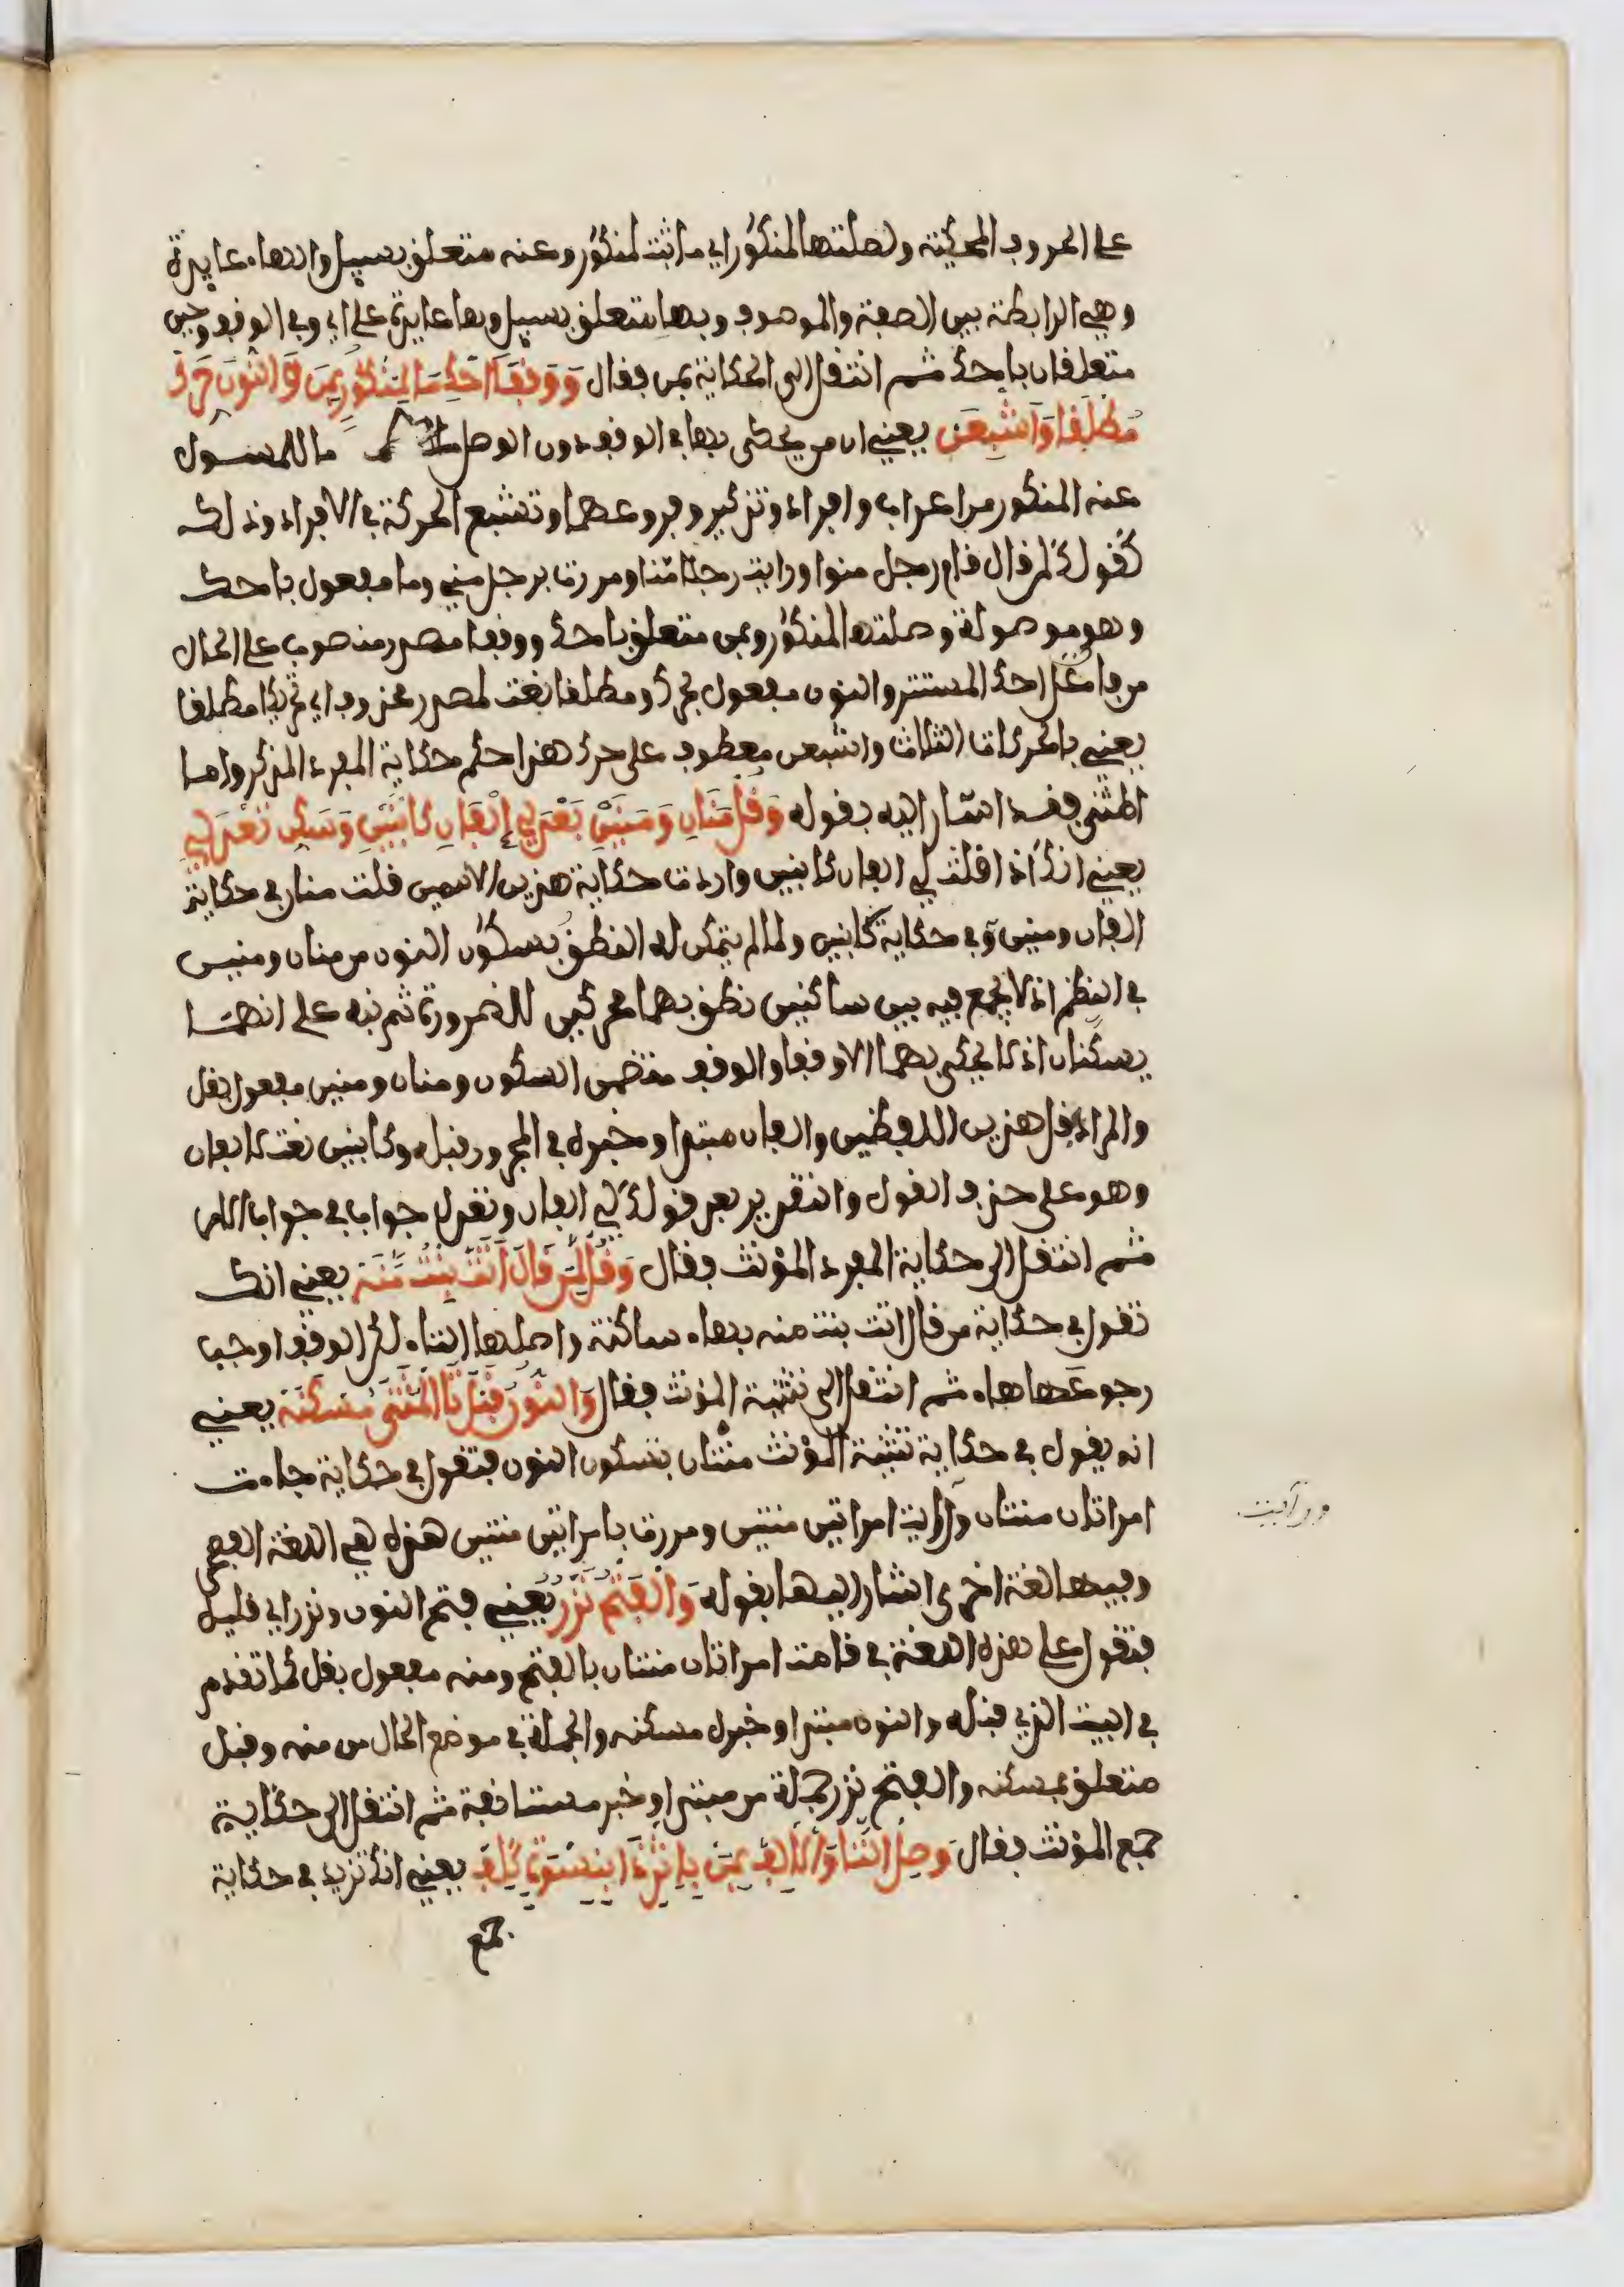 على الحروف المحكية وصلتها لمنكور اي ما ثبت لمنكور وعنه متعلق بسيل والهاء عايدة
وهي الرابطة بين الصفة والموصوف وبها متعلق بسيل وها عايدة على اي وفي الوقف وحين
متعلقان باحك ثم انتقل الى الحكاية بمن فقال وَوَقْفًا احْكِ مَا لِمَنْكُورٍ بِمَنْ وَالنُّونَ حَرِّكْ
مُطْلَقًا وَأَشْبِعَنْ يعني ان من يحكى بها في الوقف دون الوصل ما للمسئول
عنه المنكور من اعراب وافراد وتذكير وفروعهما وتشبع الحركة في الافراد وذلك
كقولك لمن قال قام رجل منوا ورايت رجلا منا ومررت برجل مني وما مفعول باحك
وهو موصولة وصلتها لمنكور وبمن متعلق باحك ووقفا مصدر منصوب على الحال
من فاعل احك المستتر والنون مفعول بحرك ومطلقا نعت لمصدر محذوف اي تحريكا مطلقا
يعني بالحركات الثلاث واشبعن معطوف على حرك هذا حكم حكاية المفرد المذكر واما
المثنى فقد اشار اليه بقوله وَقُلْ مَنَانِ وَمَنَيْنِ بَعْدَ لِي إِلْفَانِ كَابْنَيْنِ وَسَكِّنْ تَعْدِلِ
يعني انك اذا قلت لي الفان كابنين واردت حكاية هذين الاسمين قلت منان في حكاية
الفان ومنين في حكاية كابنين ولما لم يتمكن له النطق بسكون النون من منان ومنين
في النظم اذ لا يجمع فيه بين ساكنين نطق بهما محركين للضرورة ثم نبه على انهما
يسكنان اذ لا يحكى بهما الا وقفا والوقف مقتضى السكون ومنان ومنين مفعول بقل
والمراد قل هذين اللفظين والفان مبتدا وخبره في المجرور قبله وكابنين نعت لالفان
وهو على حذف القول والتقدير بعد قولك لي الفان وتعدل جواب في جواب الامر
ثم انتقل الى حكاية المفرد المؤنث فقال وَقُلْ لِمَنْ قَالَ أَتَتْ بِنْتٌ مَنَهْ يعني انك
تقول في حكاية من قال اتت بنت منه بهاء ساكنة واصلها التاء لكن الوقف اوجب
رجوعها هاء ثم انتقل الى تثنية المؤنث فقال وَالنُّونُ قَبْلَ تَا الْمُثَنَّى مُسْكَنَهْ يعني
انه يقول في حكاية تثنية المؤنث منتان بسكون النون فتقول في حكاية جاءت
امراتان منتان ورايت امراتين منتين ومررت بامراتين منتين هذه هي اللغة الفصحى
ورأيت
وفيها لغة اخرى اشار اليها بقوله وَالْفَتْحُ نَزْرٌ يعني فتح النون ونزر اي قليل
فتقول على هذه اللغة في قامت امراتان منتان بالفتح ومنه مفعول بقل كما تقدم
في البيت الذي قبله والنون مبتدا وخبره مسكنه والجملة في موضع الحال من منه وقبل
متعلق بمسكنه والفتح نزر جملة من مبتدا وخبر مستانفة ثم انتقل الى حكاية
جمع المؤنث فقال وَصِلِ التَّا وَالْأَلِفْ بِمَنْ بِإِثْرِ ذَا بِنِسْوَةٍ كَلِفْ يعني انك تزيد في حكاية
جمع